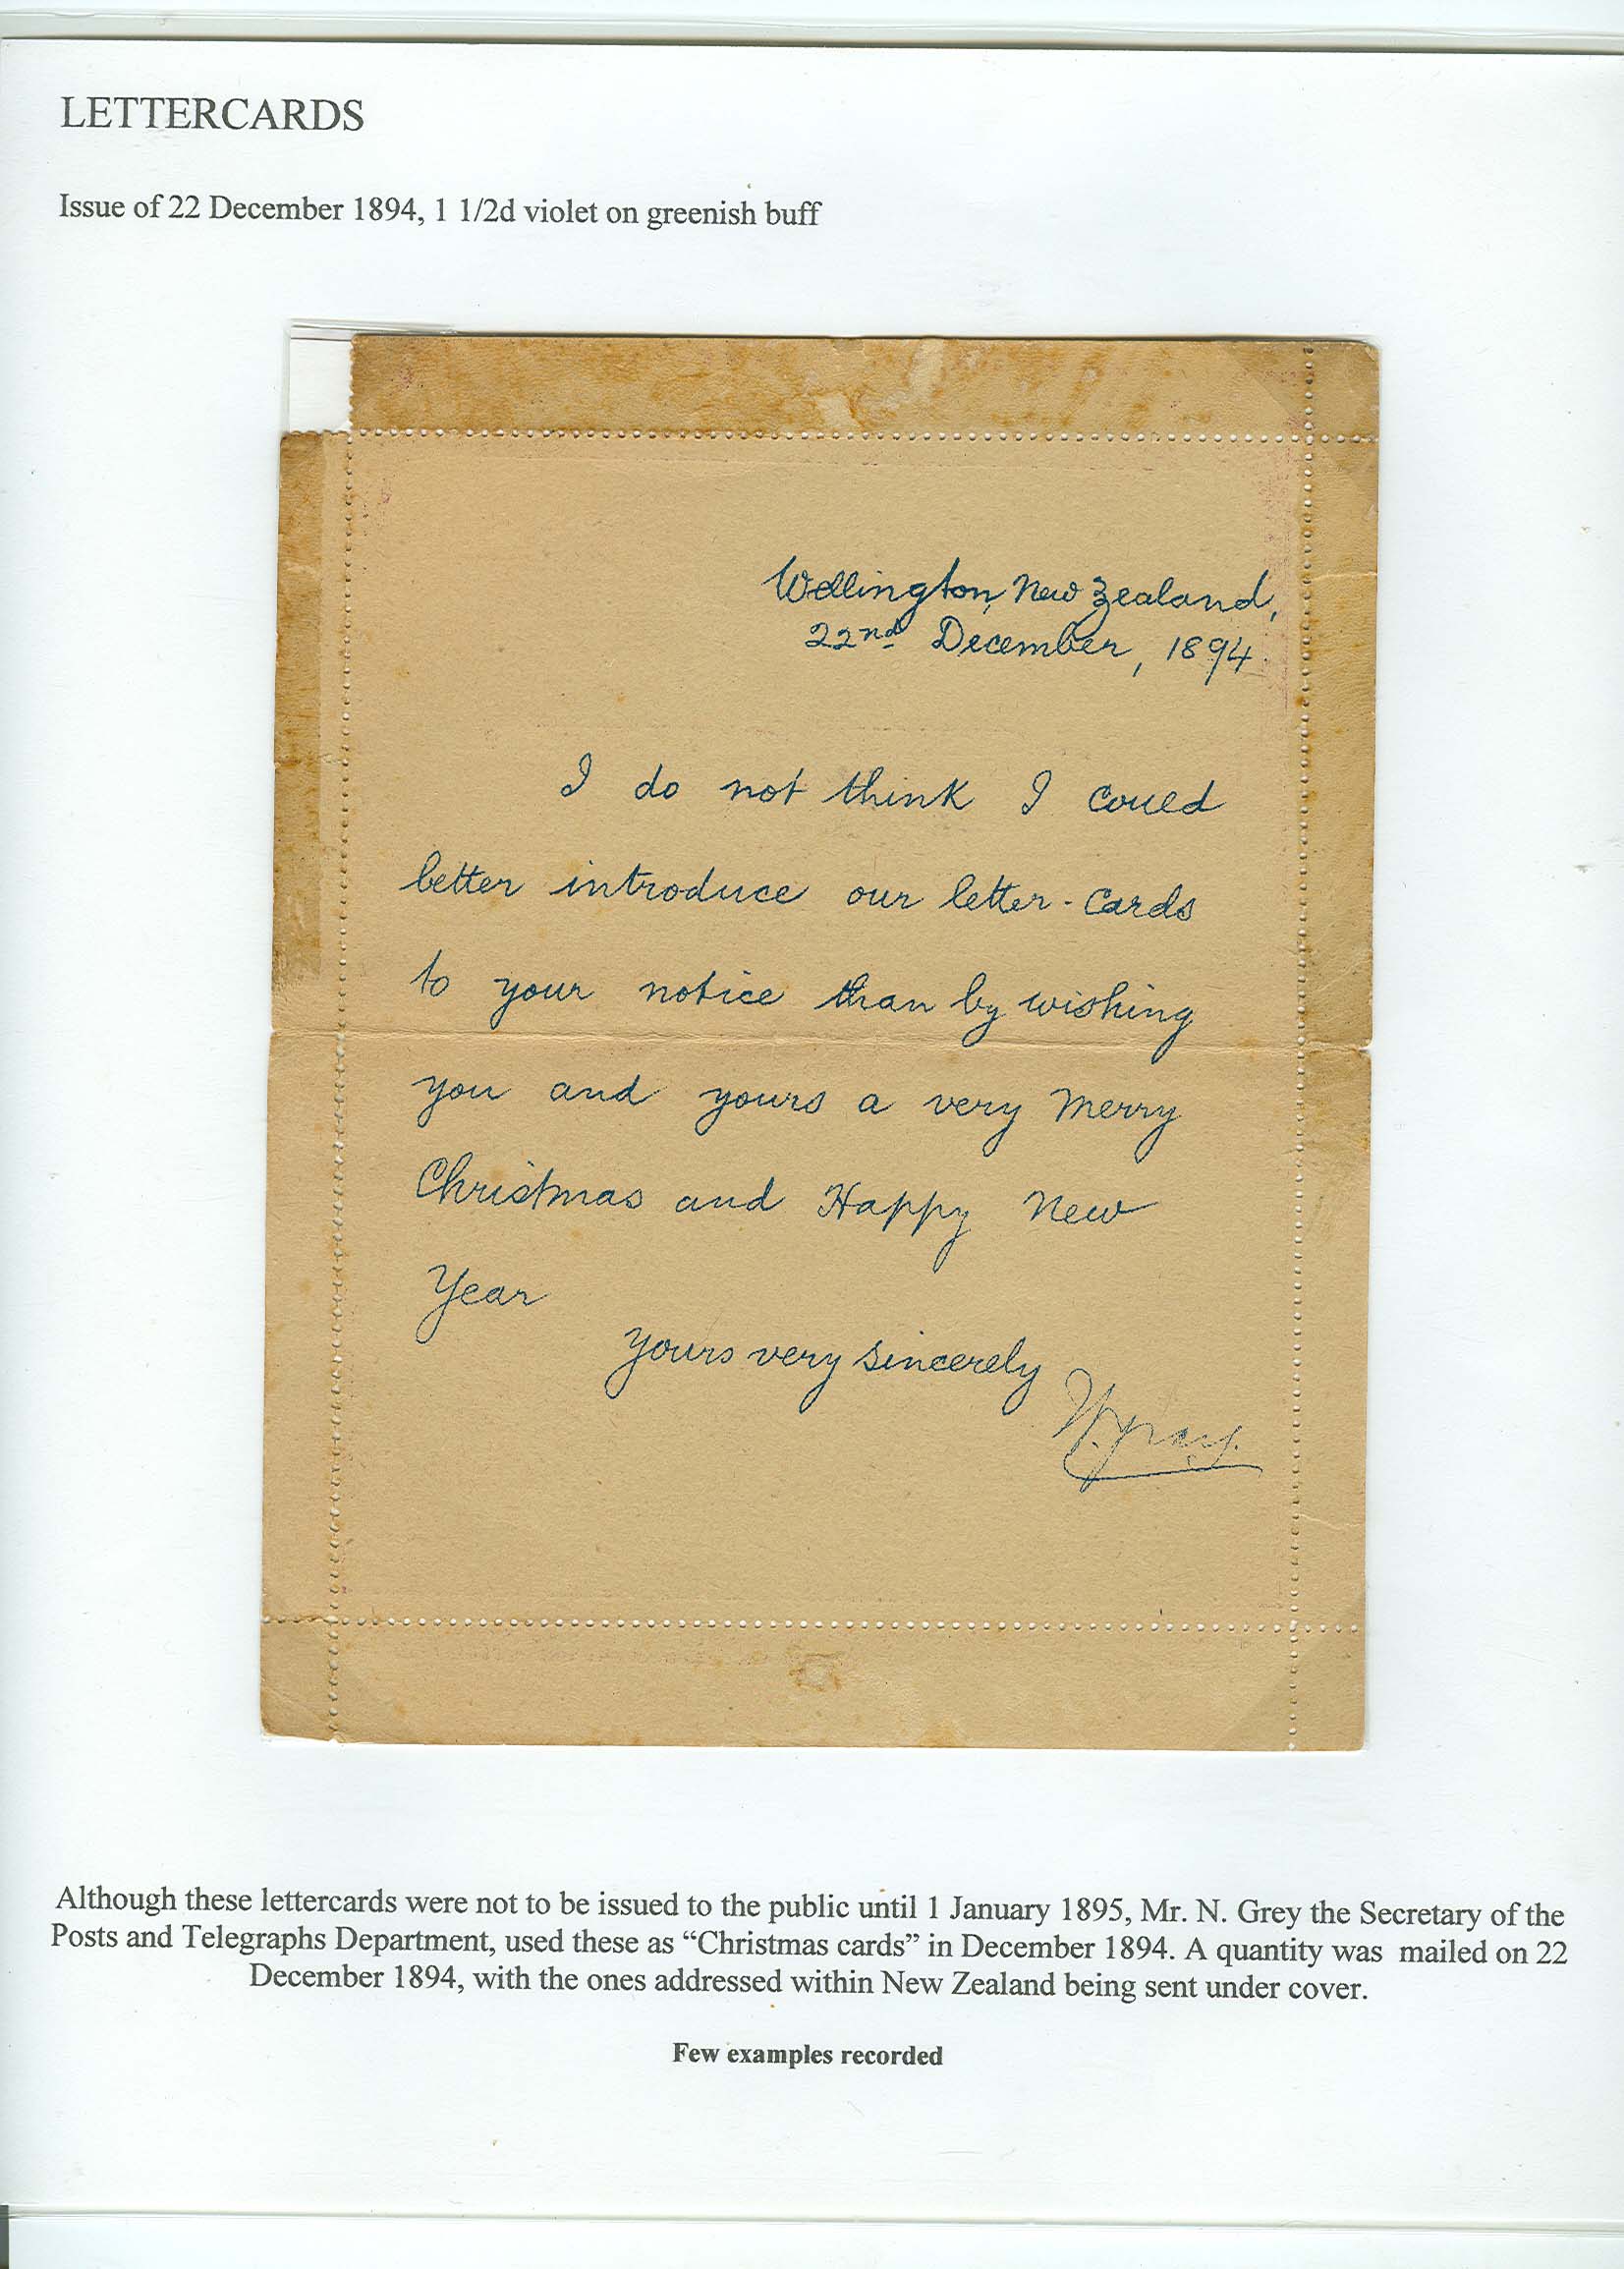 LETTERCARDS
Issue of 22 December 1894, 1 1/2d violet on greenish buff
Wellington, New Zealand,
22nd December, 1894.
I do not think I could
better introduce our letter-cards
to your notice than by wishing
you and yours a very Merry
Christmas and Happy New
Year
Yours very sincerely
W. Gray.
Although these lettercards were not to be issued to the public until 1 January 1895, Mr. N. Grey the Secretary of the
Posts and Telegraphs Department, used these as “Christmas cards” in December 1894. A quantity was mailed on 22
December 1894, with the ones addressed within New Zealand being sent under cover.
Few examples recorded